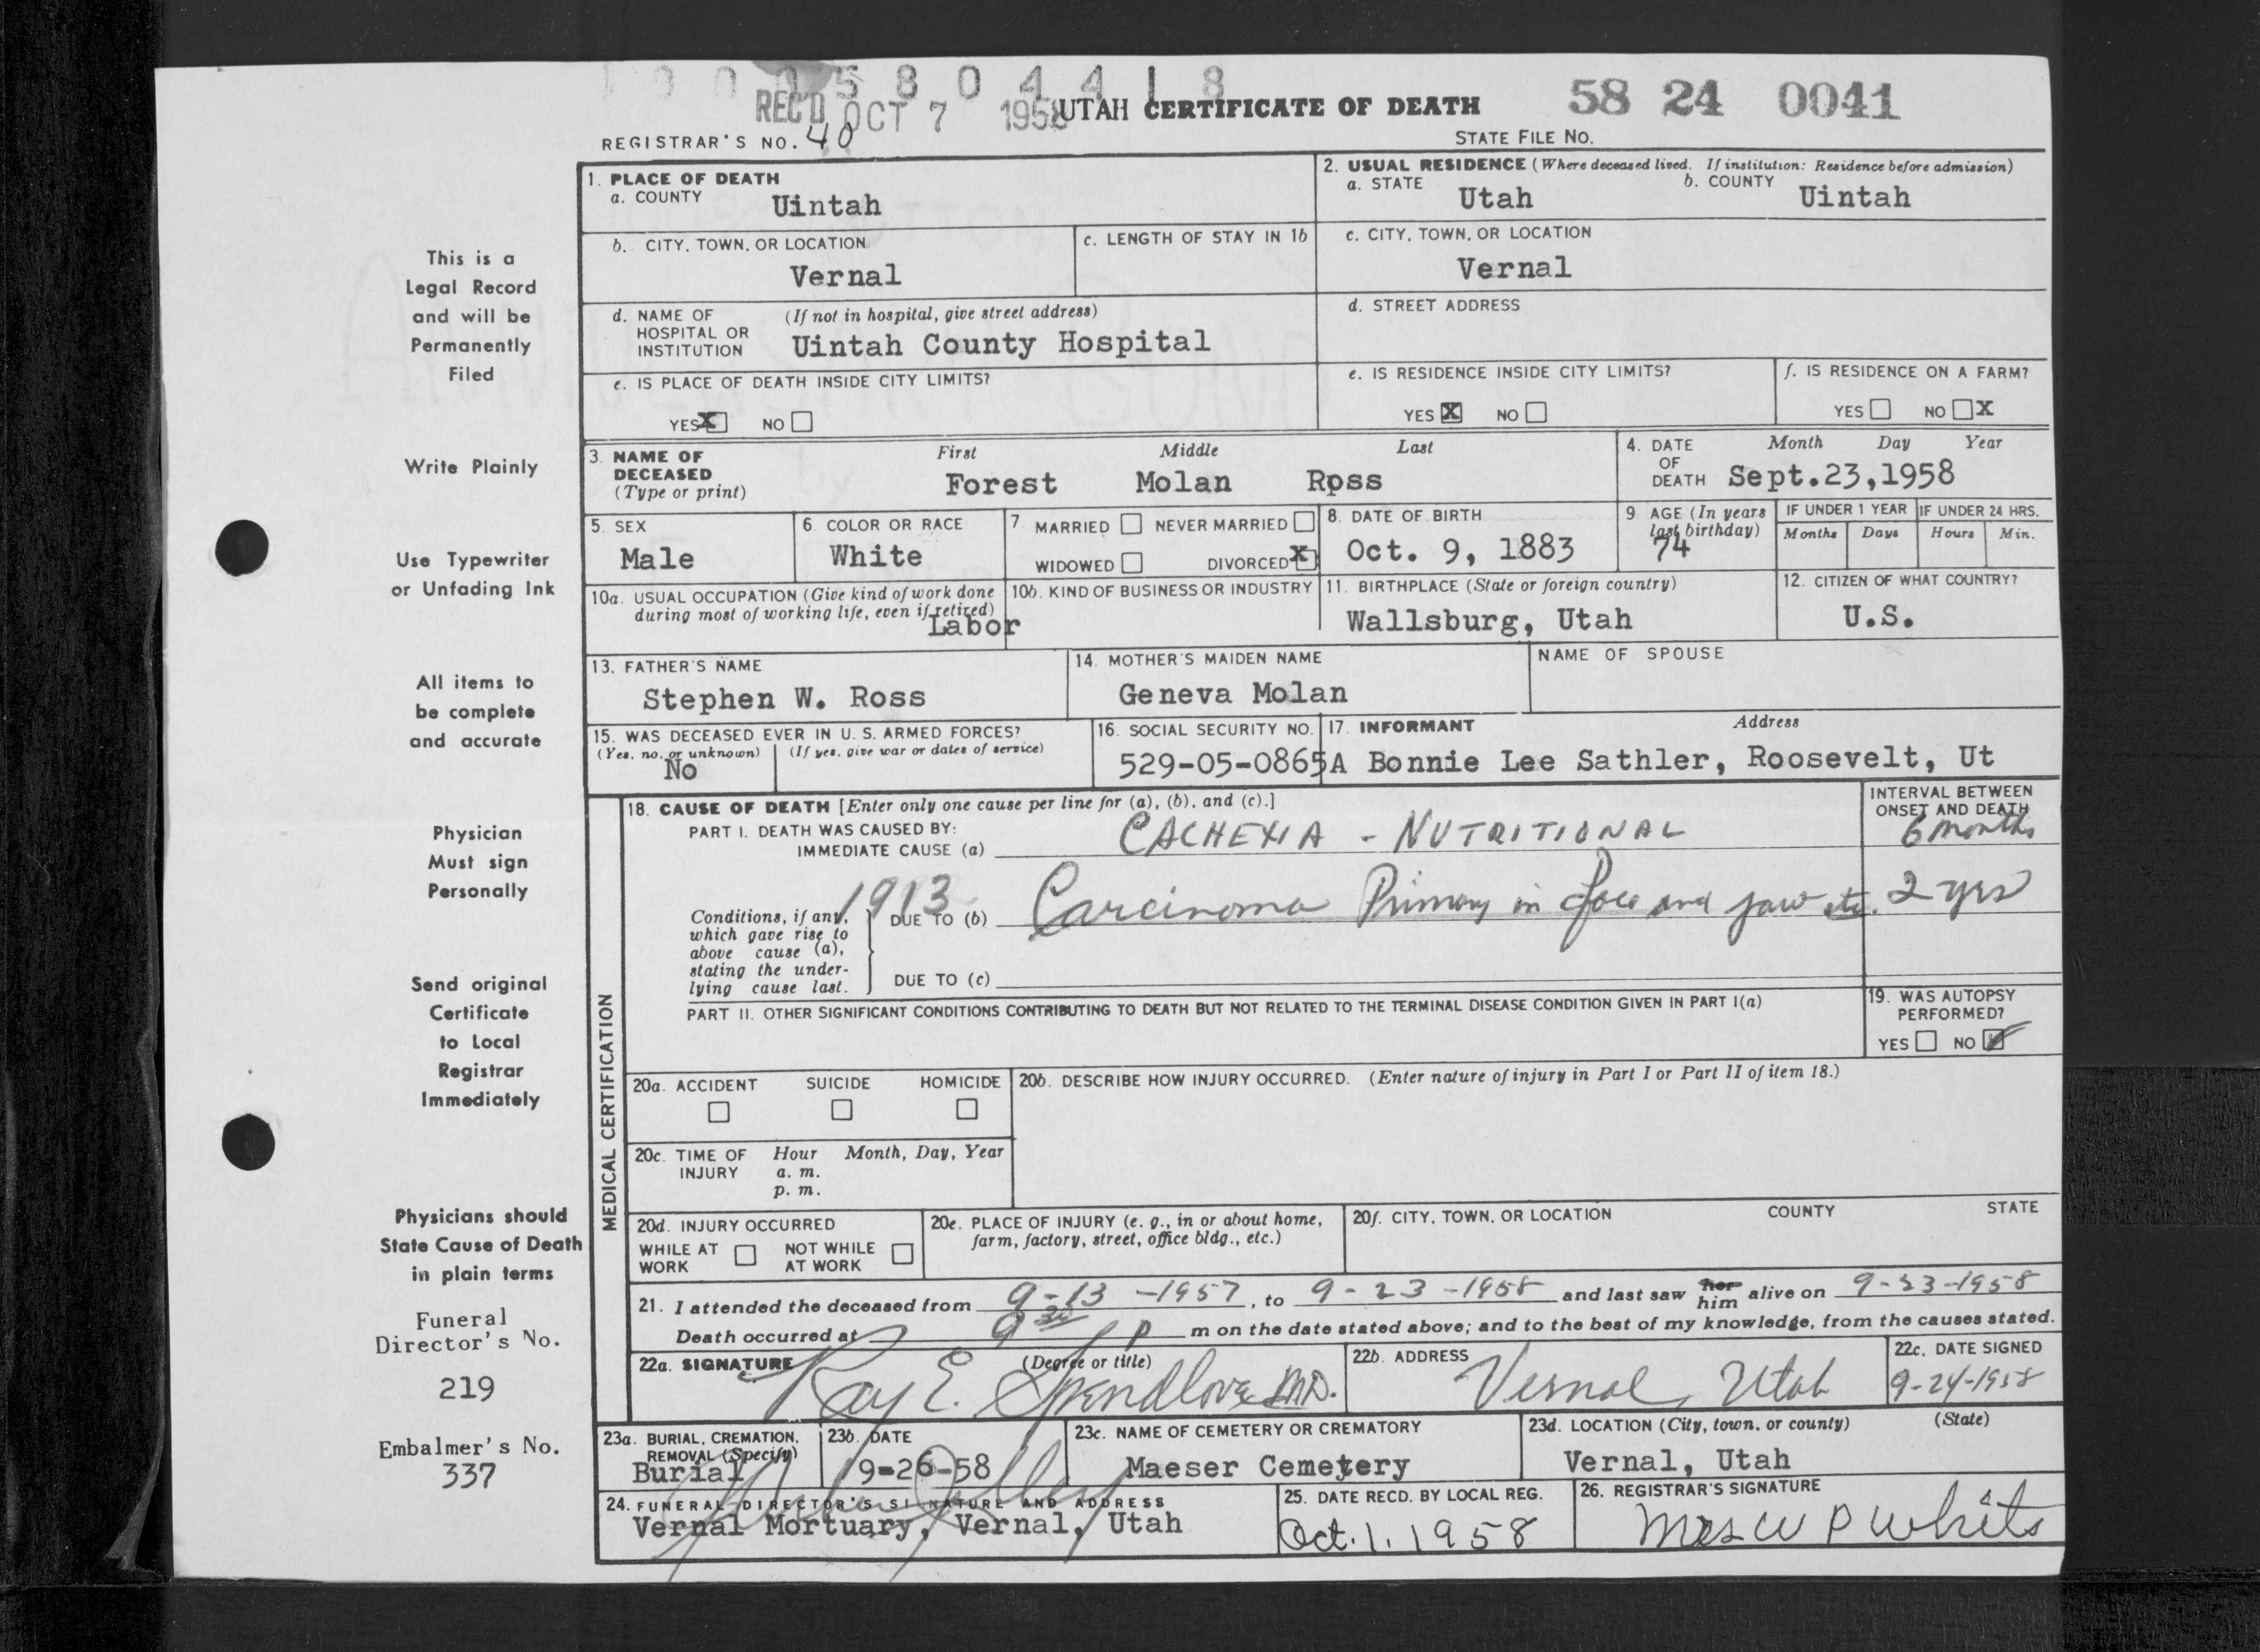 0 0 0 5 8 0 4 4 1 8
REC'D OCT 7 1958 UTAH CERTIFICATE OF DEATH 58 24 0041
REGISTRAR'S NO. 40 STATE FILE NO.
1. PLACE OF DEATH
a. COUNTY Uintah
2. USUAL RESIDENCE (Where deceased lived. If institution: Residence before admission)
a. STATE Utah b. COUNTY Uintah
b. CITY, TOWN, OR LOCATION Vernal
c. LENGTH OF STAY IN 1b
c. CITY, TOWN, OR LOCATION Vernal
d. NAME OF HOSPITAL OR INSTITUTION (If not in hospital, give street address)
Uintah County Hospital
d. STREET ADDRESS
e. IS PLACE OF DEATH INSIDE CITY LIMITS?
YES X NO
e. IS RESIDENCE INSIDE CITY LIMITS?
YES X NO
f. IS RESIDENCE ON A FARM?
YES NO X
3. NAME OF DECEASED (Type or print)
First Middle Last
Forest Molan Ross
4. DATE OF DEATH Month Day Year
Sept.23,1958
5. SEX
Male
6. COLOR OR RACE
White
7. MARRIED NEVER MARRIED
WIDOWED DIVORCED X
8. DATE OF BIRTH
Oct. 9, 1883
9. AGE (In years last birthday)
74
IF UNDER 1 YEAR IF UNDER 24 HRS.
Months Days Hours Min.
10a. USUAL OCCUPATION (Give kind of work done during most of working life, even if retired)
Labor
10b. KIND OF BUSINESS OR INDUSTRY
11. BIRTHPLACE (State or foreign country)
Wallsburg, Utah
12. CITIZEN OF WHAT COUNTRY?
U.S.
13. FATHER'S NAME
Stephen W. Ross
14. MOTHER'S MAIDEN NAME
Geneva Molan
NAME OF SPOUSE
15. WAS DECEASED EVER IN U. S. ARMED FORCES?
(Yes, no, or unknown) (If yes, give war or dates of service)
No
16. SOCIAL SECURITY NO.
529-05-0865A
17. INFORMANT Address
Bonnie Lee Sathler, Roosevelt, Ut
MEDICAL CERTIFICATION
18. CAUSE OF DEATH [Enter only one cause per line for (a), (b), and (c).]
INTERVAL BETWEEN ONSET AND DEATH
PART I. DEATH WAS CAUSED BY:
IMMEDIATE CAUSE (a) CACHEXIA - NUTRITIONAL 6 months
1913
Conditions, if any, which gave rise to above cause (a), stating the underlying cause last.
DUE TO (b) Carcinoma Primary in face and jaw etc. 2 yrs
DUE TO (c)
PART II. OTHER SIGNIFICANT CONDITIONS CONTRIBUTING TO DEATH BUT NOT RELATED TO THE TERMINAL DISEASE CONDITION GIVEN IN PART I(a)
19. WAS AUTOPSY PERFORMED?
YES NO
20a. ACCIDENT SUICIDE HOMICIDE
20b. DESCRIBE HOW INJURY OCCURRED. (Enter nature of injury in Part I or Part II of item 18.)
20c. TIME OF INJURY Hour Month, Day, Year
a. m.
p. m.
20d. INJURY OCCURRED
WHILE AT WORK NOT WHILE AT WORK
20e. PLACE OF INJURY (e. g., in or about home, farm, factory, street, office bldg., etc.)
20f. CITY, TOWN, OR LOCATION COUNTY STATE
21. I attended the deceased from 9-13-1957, to 9-23-1958 and last saw her him alive on 9-23-1958
Death occurred at 9 30 P m on the date stated above; and to the best of my knowledge, from the causes stated.
22a. SIGNATURE (Degree or title)
Ray E. Spendlove M.D.
22b. ADDRESS
Vernal, Utah
22c. DATE SIGNED
9-24-1958
23a. BURIAL, CREMATION, REMOVAL (Specify)
Burial
23b. DATE
9-26-58
23c. NAME OF CEMETERY OR CREMATORY
Maeser Cemetery
23d. LOCATION (City, town, or county) (State)
Vernal, Utah
24. FUNERAL DIRECTOR'S SIGNATURE AND ADDRESS
Vernal Mortuary, Vernal, Utah
25. DATE RECD. BY LOCAL REG.
Oct. 1. 1958
26. REGISTRAR'S SIGNATURE
Mrs W P White
This is a
Legal Record
and will be
Permanently
Filed
Write Plainly
Use Typewriter
or Unfading Ink
All items to
be complete
and accurate
Physician
Must sign
Personally
Send original
Certificate
to Local
Registrar
Immediately
Physicians should
State Cause of Death
in plain terms
Funeral
Director's No.
219
Embalmer's No.
337